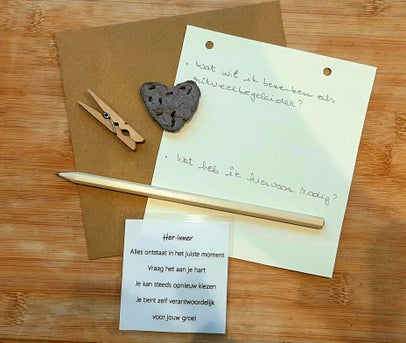 • Wat wil ik bereiken als
ritueelbegeleider?
• Wat heb ik hiervoor nodig?
Her-inner
Alles ontstaat in het juiste moment
Vraag het aan je hart
Je kan steeds opnieuw kiezen
Je bent zelf verantwoordelijk
voor jouw groei